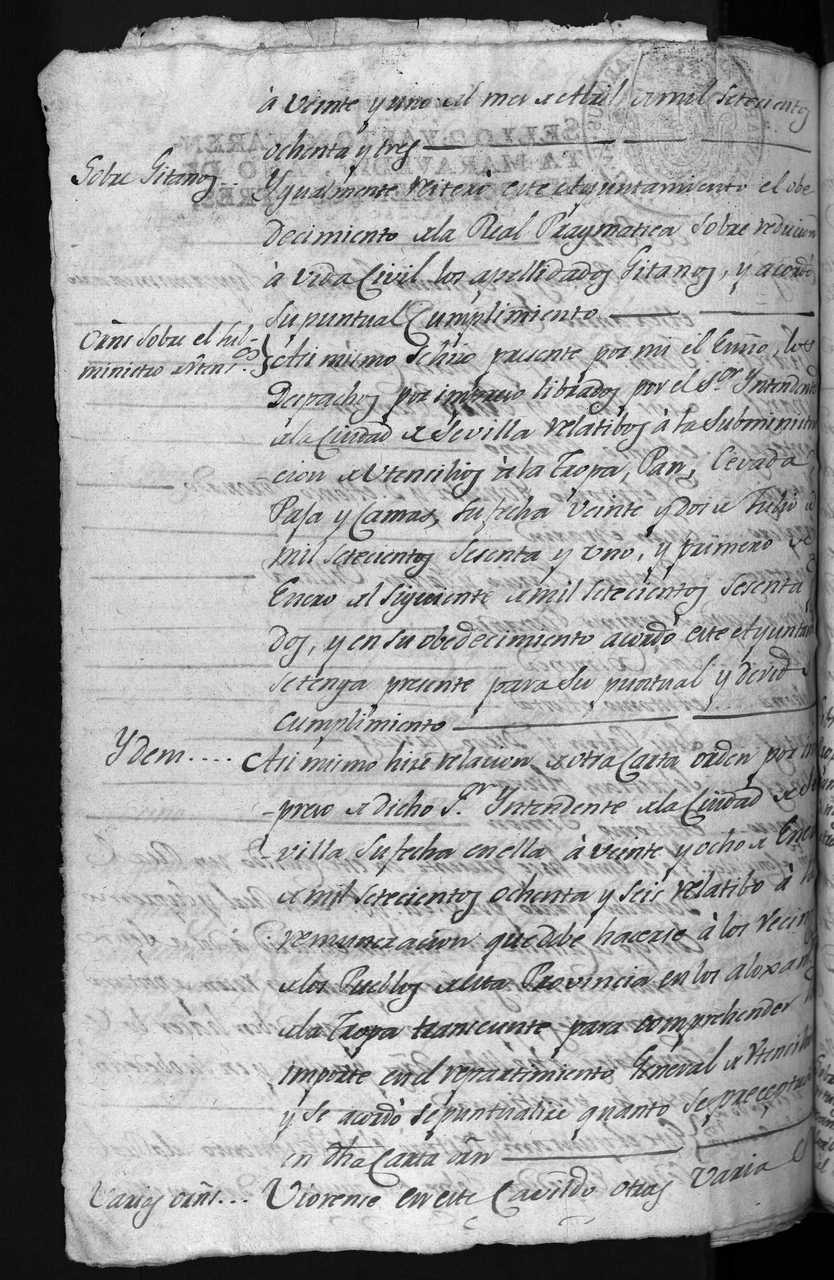 à veinte y uno del mes de Abril de mil setecientos
ochenta y tres
Sobre Gitanos..
Ygualmente reiterò este Ayuntamiento el obe
decimiento de la Real Pragmatica sobre reducion
à vida Civil los apellidados Gitanos, y acordò
su puntual Cumplimiento
Orns sobre el sub-
ministro
Asi mismo se hizo presente por mi el Essno, los
Despachos por impreso librados por el Sor. Yntendente
de la Ciudad de Sevilla relatibos à la Subministra
cion de Vtencilios à la Tropa, Pan, Cevada
Paja y Camas, su fecha veinte y dos de Julio de
mil setecientos sesenta y vno, y primero de
Enero del siguiente de mil setecientos sesenta y
dos, y en su obedecimiento acordò este Ayunta
se tenga presente para su puntual y devido
cumplimiento
Ydem....
Asi mismo hize relacion de otra Carta orden por im
-preso de dicho Sr. Yntendente de la Ciudad de Se
villa su fecha en ella à veinte y ocho de Enero
de mil setecientos ochenta y seis relatibo à la
remuneracion que debe hacerse à los vecinos
de los Pueblos de esta Provincia en los aloxam
de la Tropa transeunte para comprehender su
importe en el repartimiento General de Vtencilios
y se acordò se puntualize quanto se preceptua
en dha Carta orn
Varias orns...
Vioronse en este Cavildo otras varias